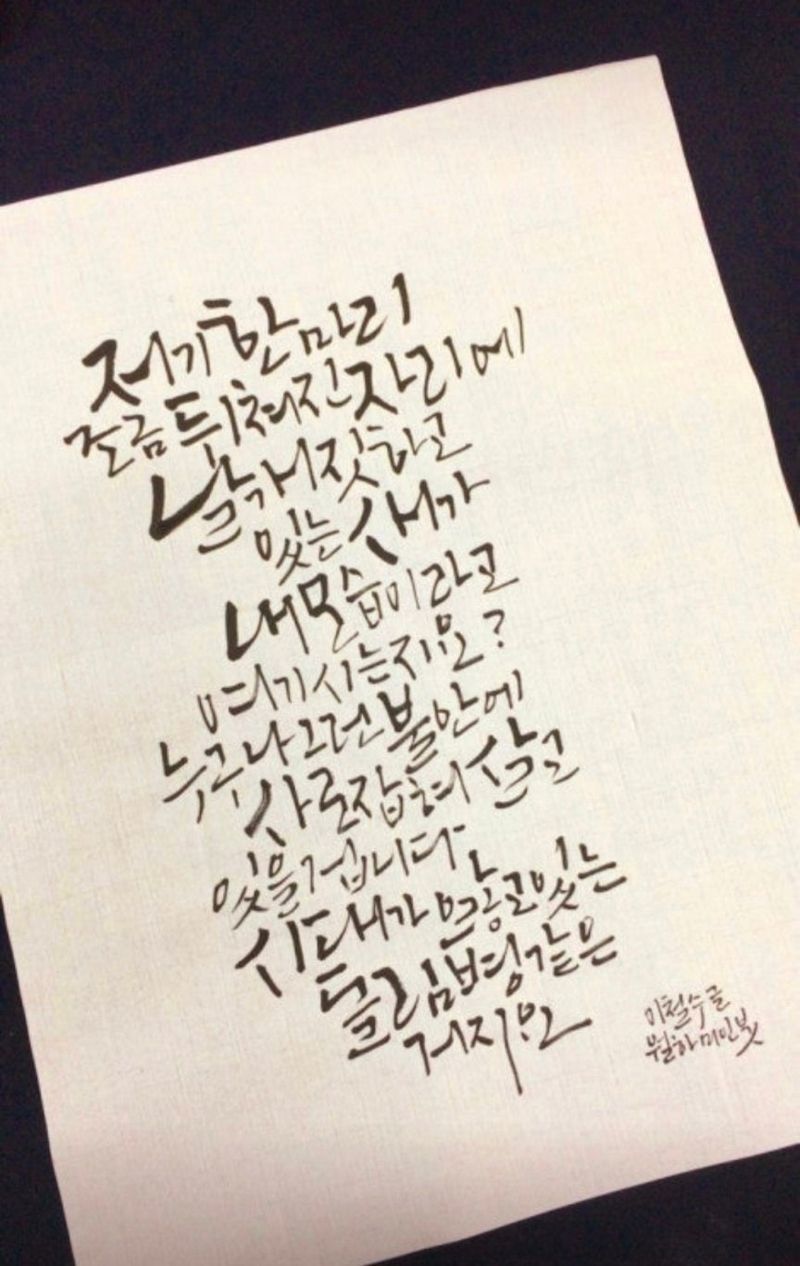 저기 한 마리
조금 뒤쳐진 자리에
날개짓하고
있는 새가
내 모습이라고
여기시는지요?
누구나 그런 불안에
사로잡혀 살고
있을 겁니다
시대가 앓고 있는
돌림병 같은
거지요
이철수 글
월하미인 붓